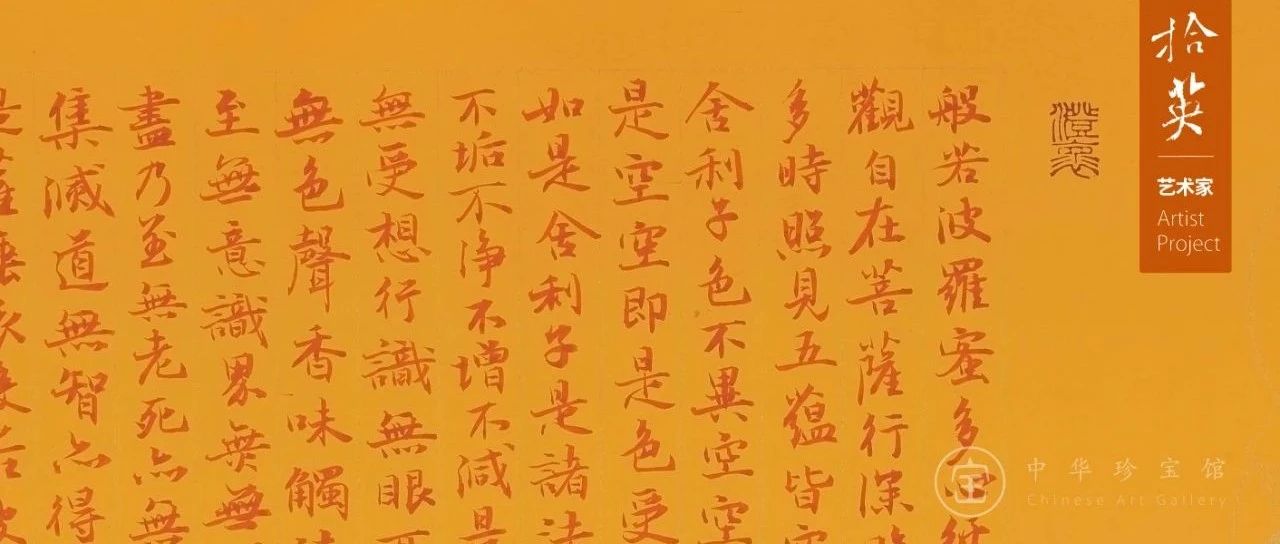 拾英
艺术家
Artist
Project
般若波羅蜜多心經
觀自在菩薩行深般
多時照見五蘊皆空
舍利子色不異空空
是空空即是色受
如是舍利子是諸法
不垢不淨不增不減是
無受想行識無眼耳
無色聲香味觸法
至無意識界無無
盡乃至無老死亦無
集滅道無智亦得
中华珍宝馆
Chinese Art Gallery